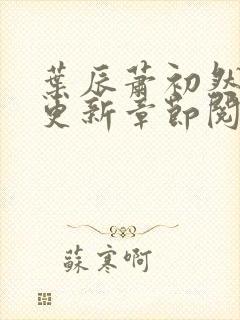 葉辰蕭初然
更新章節閱
蘇寒啊